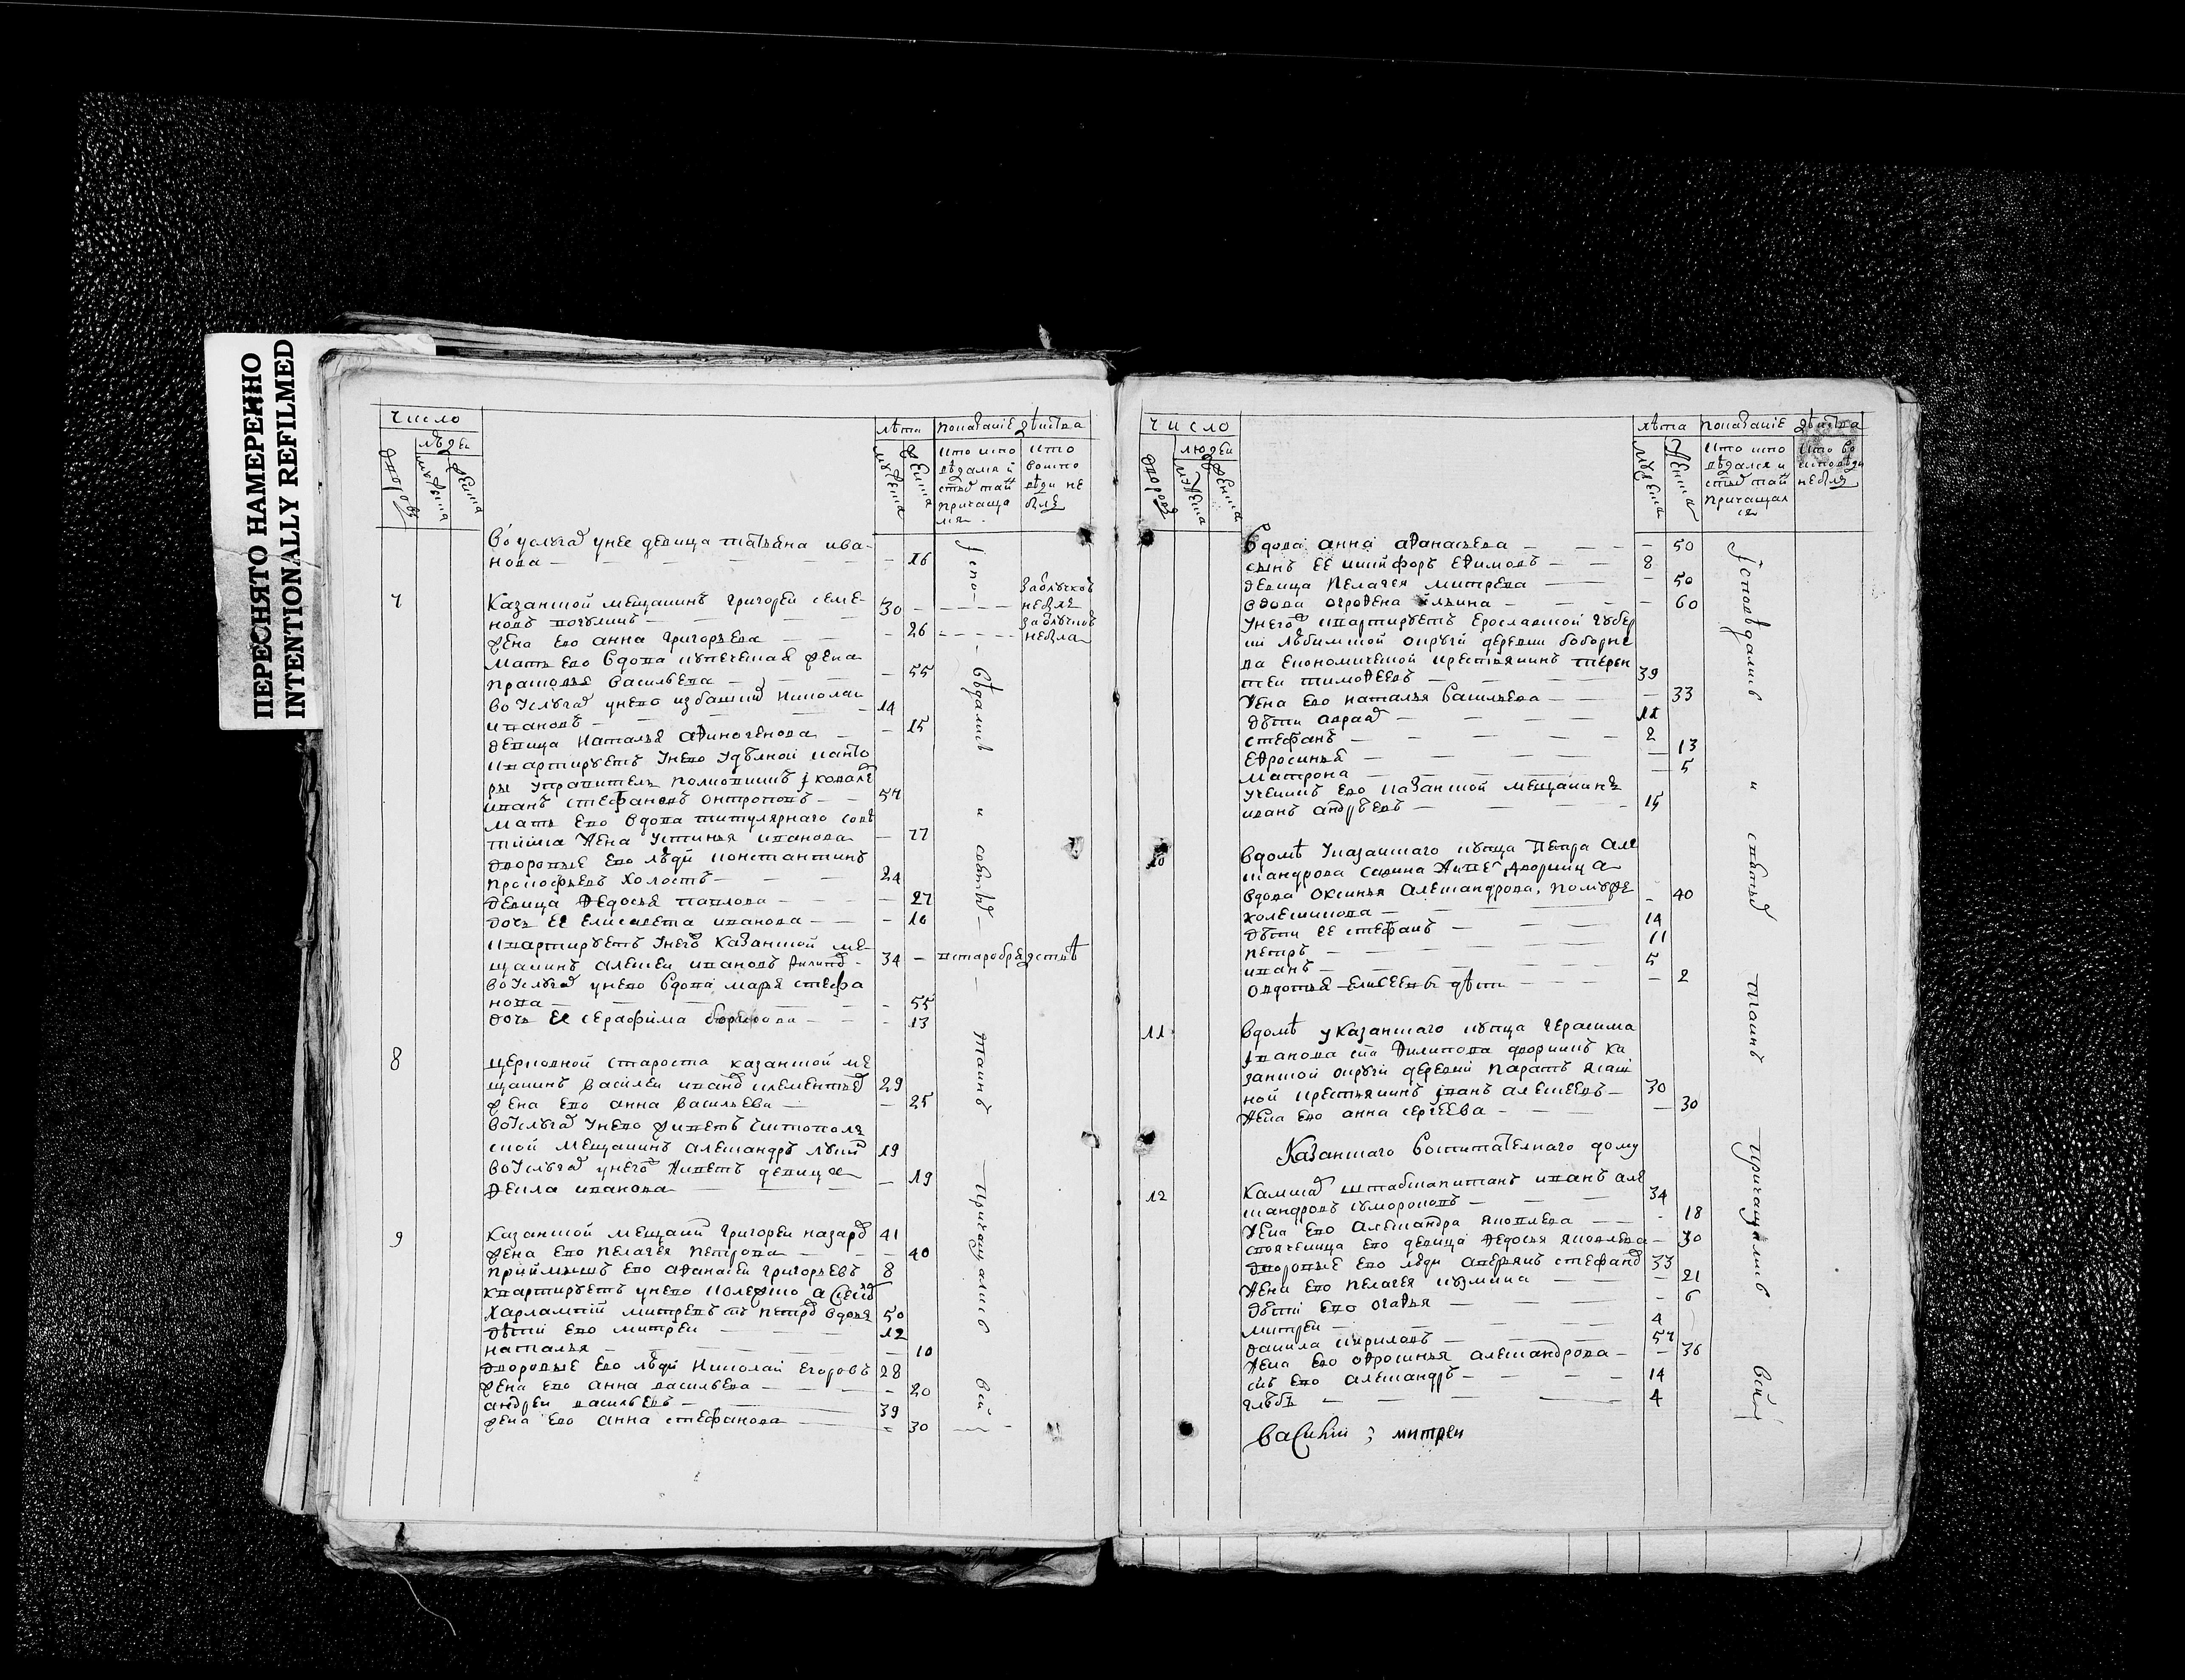 ПЕРЕСНЯТО НАМЕРЕННО
INTENTIONALLY REFILMED
число
людеи
дворовъ
мужеска
женска
лѣта
мужеска
женска
показание действа
кто испо
ведался и
стых таи
причаща
лся
кто
во испо
веди не
былъ
во услугах у нее девица татьяна ива-
нова — — — — — — 16
за отлучкою
не былъ
7 Казанской мещанинъ григореи семе-
новъ — 30
за отлучкою
не была
жена ево анна григорьева — — — 26
мать ево вдова купеческая жена
прасковья васильева — — — 55
во услугах у него из башкир николаи
ивановъ — — — 14
девица наталья афиногенова — — 15
квартируетъ у него удельной канто
ры управитель полковникъ и кавалеръ
иванъ стефановъ онтроповъ — — 57
мать ево вдова титулярнаго совѣ
тника жена устинья иванова — 77
дворовые ево люди константинъ
прокофьевъ холостъ — — — 24
девица федосья павлова — — — 27
дочь ее елисавета иванова — — — 10
квартируетъ у него казанской ме-
щанинъ алексеи ивановъ филипов - 34 — в старобрядстве
во услугах у него вдова марья стефа
нова — — — — 55
дочь ее серафима — — 13
8 церковной староста казанской ме
щанинъ василеи иванов климентьев 29
жена ево анна васильева — — 25
во услугах у него живетъ чистополь
ской мещанинъ александръ 19
во услугах у него живетъ девица
фекла иванова — — 19
9 Казанской мещанин григореи назаров 41
жена ево пелагея петрова — — — 40
приимышъ ево афанасеи григорьевъ 8
квартируетъ у него колежской асесор
харлампий митревъ сынъ петров вдовъ 50
дѣти ево митреи — — — 12
наталья — — — — 10
дворовые ево люди николай егоровъ 28
жена ево анна васильева — — — 20
андреи васильевъ — — 39
жена ево анна стефанова — — 30
Испо-
ведались
и
святых
таинъ
причащались
вси
число
людеи
дворовъ
мужеска
женска
лѣта
мужеска
женска
показание действа
кто испо
ведался и
стых таи
причащал
ся
кто во
исповеди
не былъ
вдова анна афанасьева — — — — 50
сынъ ее никифоръ ефимовъ — — 8
девица пелагея митрева — — — 50
вдова огрофена ильина — — — 60
у него квартируетъ ерославской губер
нии любимской округи деревни
ва економической крестьянинъ терен
теи тимофеевъ — — — 39
жена ево наталья васильева — — — 33
дѣти авраам — — — — 11
стефанъ — — — — 2
ефросинья — — — — 13
матрона — — — — 5
ученикъ ево казанской мещанинъ
иванъ андреевъ — — — 15
10 в домѣ казанскаго купца петра але
ксандрова савина живет дворница
вдова оксинья александрова, полкуфе
колесникова — — — 40
дѣти ее стефанъ — — — 14
петръ — — — — 11
иванъ — — — — 5
овдотья елисеевы дѣти — — — 2
11 в домѣ у казанскаго купца герасима
иванова сна филипова дворникъ ка
занской округи деревни паратъ ясаш
ной крестьянинъ иванъ алексеевъ — 30
жена ево анна сергеева — — — 30
Казанскаго воспитателнаго дому
12 штабскапитанъ иванъ але
ксандровъ суморочовъ — — 34
жена ево александра яковлева — — 18
свояченица ево девица федосья яковлева — 30
дворовые ево люди аверьянъ стефанов 33
жена ево пелагея кузмина — — 21
дѣти ево огафья — — — 6
митреи — — — — 4
данила кириловъ — — — 57
жена ево офросинья александрова — — 36
снъ ево александръ — — — — 14
глѣбъ — — — — 4
василий ; митреи
Исповѣдались
и
святых
таинъ
причащались
вси